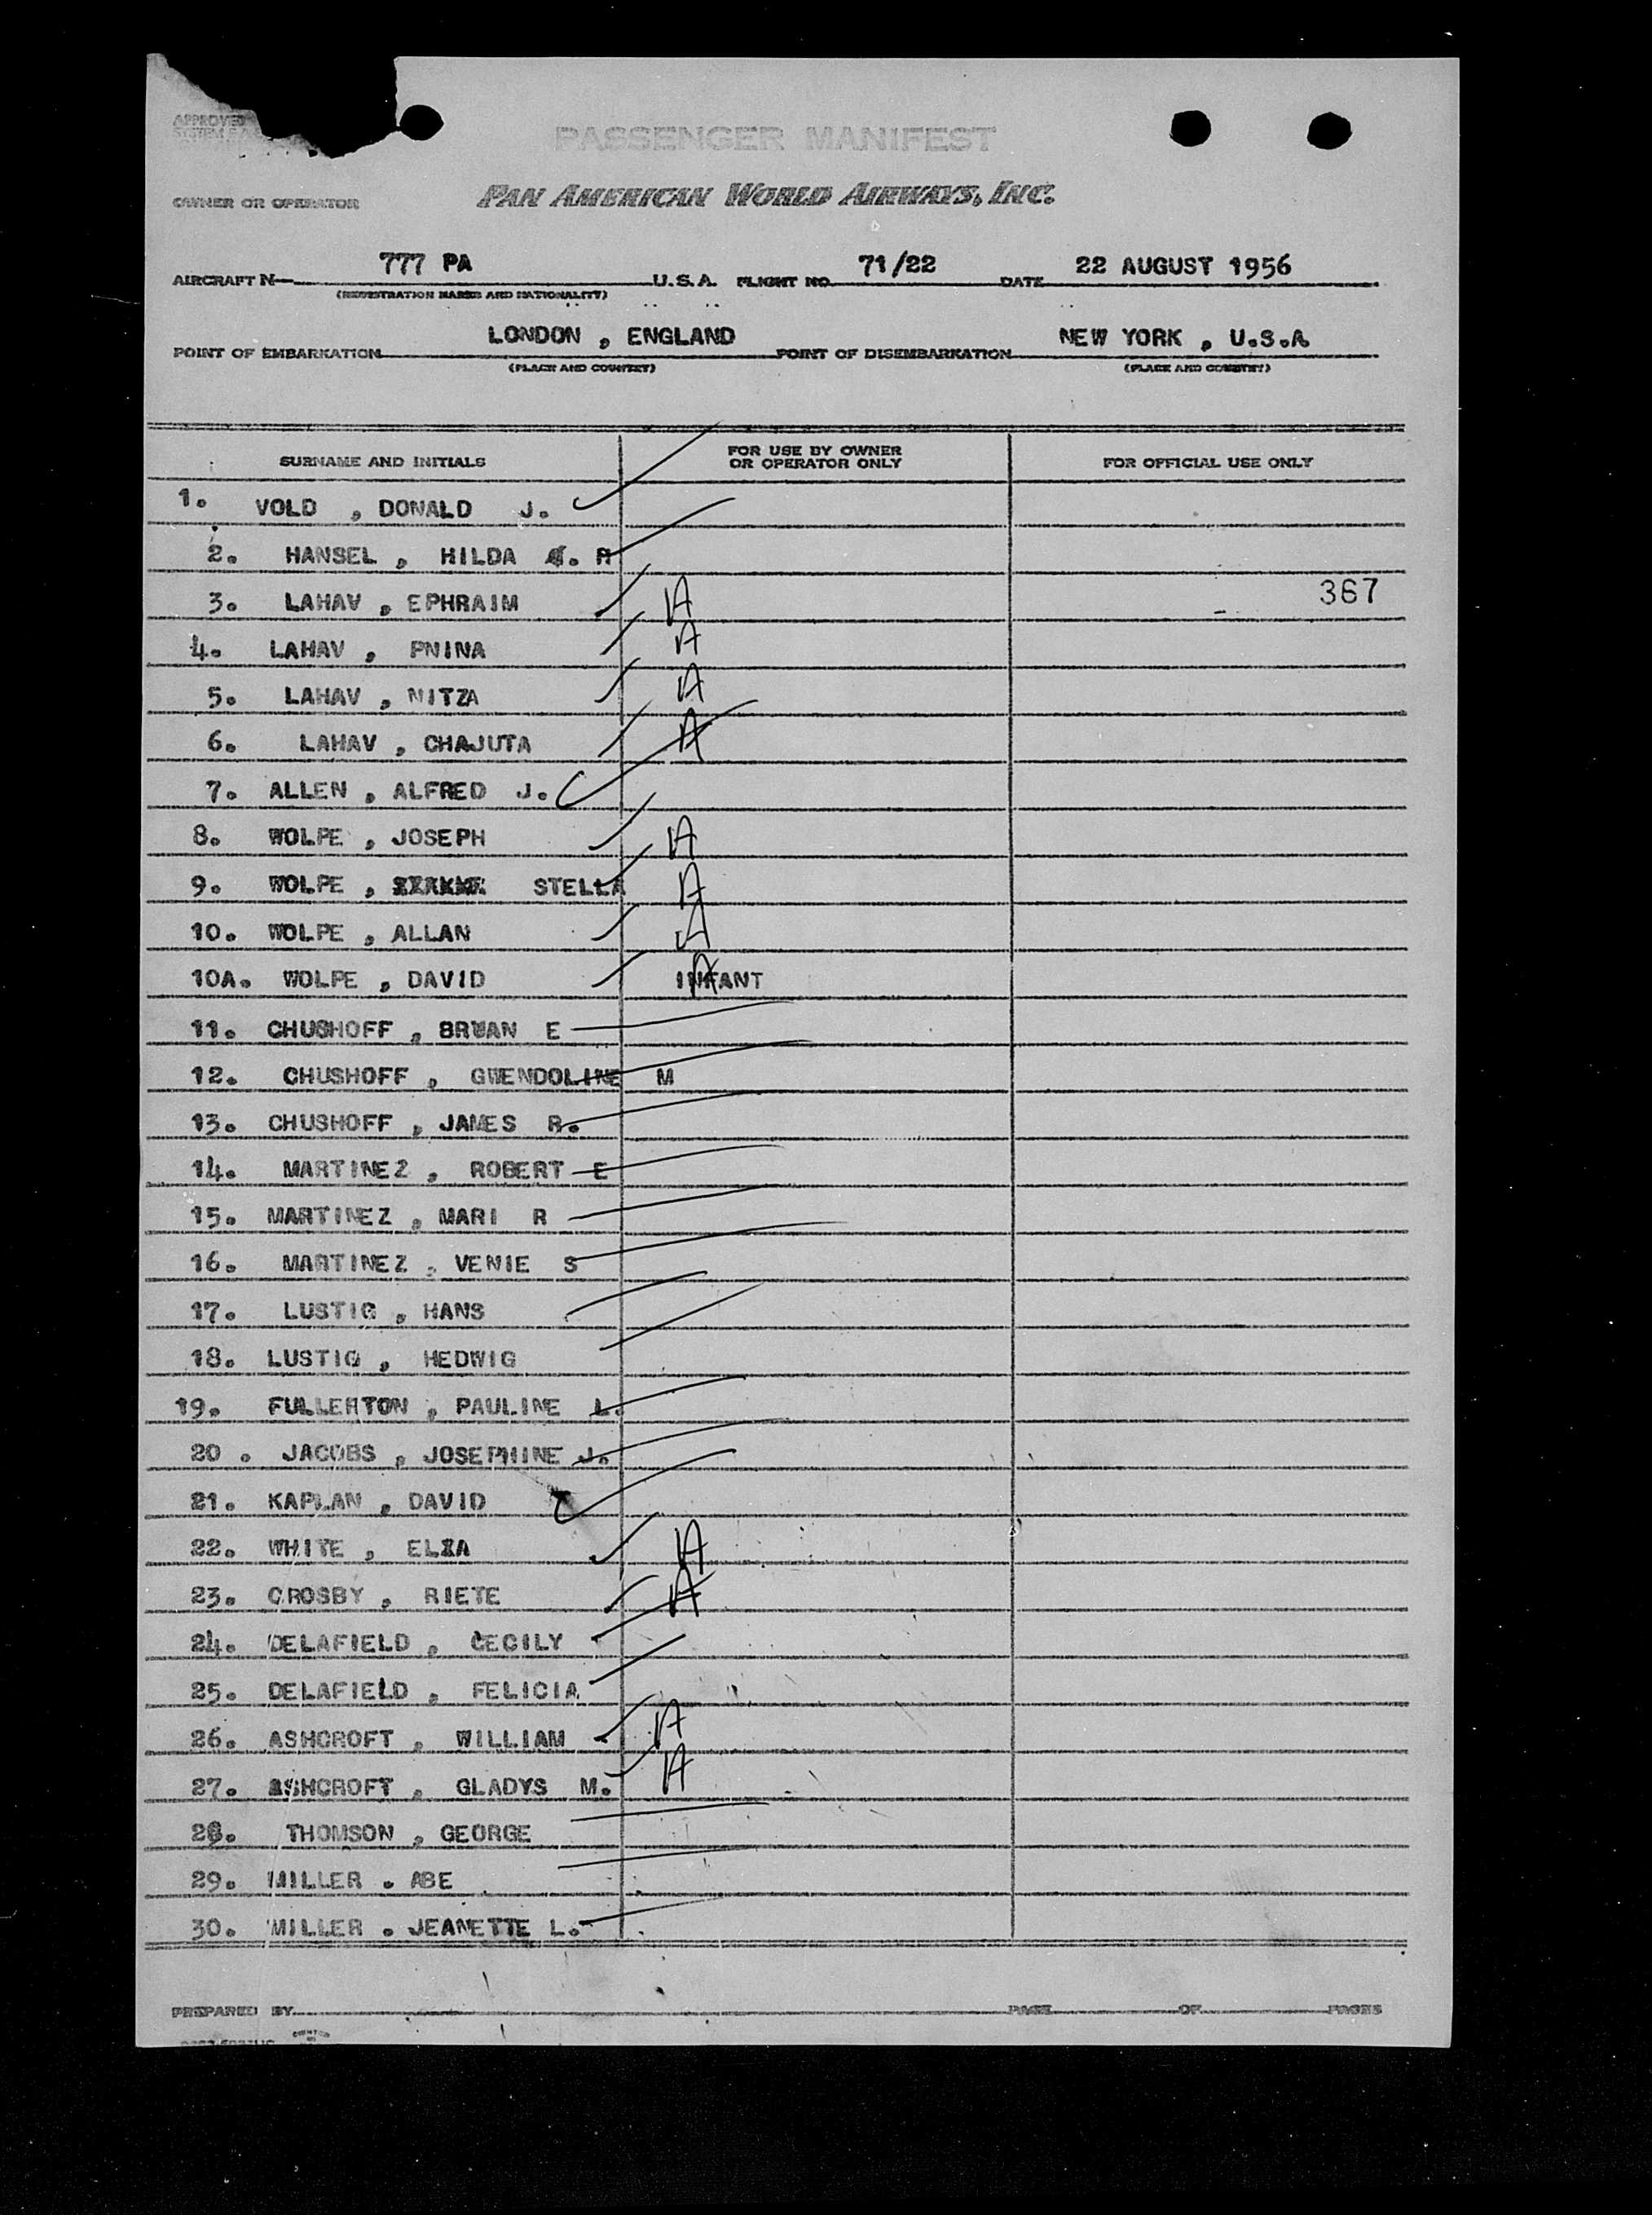 APPROVED
PASSENGER MANIFEST
OWNER OR OPERATOR PAN AMERICAN WORLD AIRWAYS, INC.
AIRCRAFT N— 777 PA U.S.A. FLIGHT NO. 71/22 DATE 22 AUGUST 1956
(REGISTRATION MARKS AND NATIONALITY)
POINT OF EMBARKATION LONDON , ENGLAND POINT OF DISEMBARKATION NEW YORK , U.S.A
(PLACE AND COUNTRY) (PLACE AND COUNTRY)
SURNAME AND INITIALS FOR USE BY OWNER OR OPERATOR ONLY FOR OFFICIAL USE ONLY
1. VOLD , DONALD J.
2. HANSEL , HILDA . R
3. LAHAV , EPHRAIM A 367
4. LAHAV , PNINA A
5. LAHAV , NITZA A
6. LAHAV , CHAJUTA A
7. ALLEN , ALFRED J.
8. WOLPE , JOSEPH A
9. WOLPE , STELLA A
10. WOLPE , ALLAN A
10A. WOLPE , DAVID INFANT A
11. CHUSHOFF , BRUAN E
12. CHUSHOFF , GWENDOLINE M
13. CHUSHOFF , JAMES R.
14. MARTINEZ , ROBERT E
15. MARTINEZ , MARI R
16. MARTINEZ , VENIE S
17. LUSTIG , HANS
18. LUSTIG , HEDWIG
19. FULLERTON , PAULINE L.
20 . JACOBS , JOSEPHINE J.
21. KAPLAN , DAVID
22. WHITE , ELZA A
23. CROSBY , RIETE A
24. DELAFIELD , CECILY
25. DELAFIELD , FELICIA
26. ASHCROFT , WILLIAM A
27. ASHCROFT , GLADYS M. A
28. THOMSON , GEORGE
29. MILLER . ABE
30. MILLER . JEANETTE L.
PREPARED BY PAGE OF PAGES